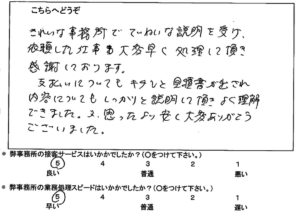 こちらへどうぞ
きれいな事務所でていねいな説明を受け、
依頼した仕事も大変早く処理して頂き
感謝しております。
支払いについてもキチンと見積書が出され
内容についてもしっかりと説明して頂きよく理解
できました。又、思ったより安く大変ありがとう
ございました。
* 弊事務所の接客サービスはいかがでしたか？（〇をつけて下さい。）
5 4 3 2 1
良い 普通 悪い
* 弊事務所の業務処理スピードはいかがでしたか？（〇をつけて下さい。）
5 4 3 2 1
早い 普通 遅い